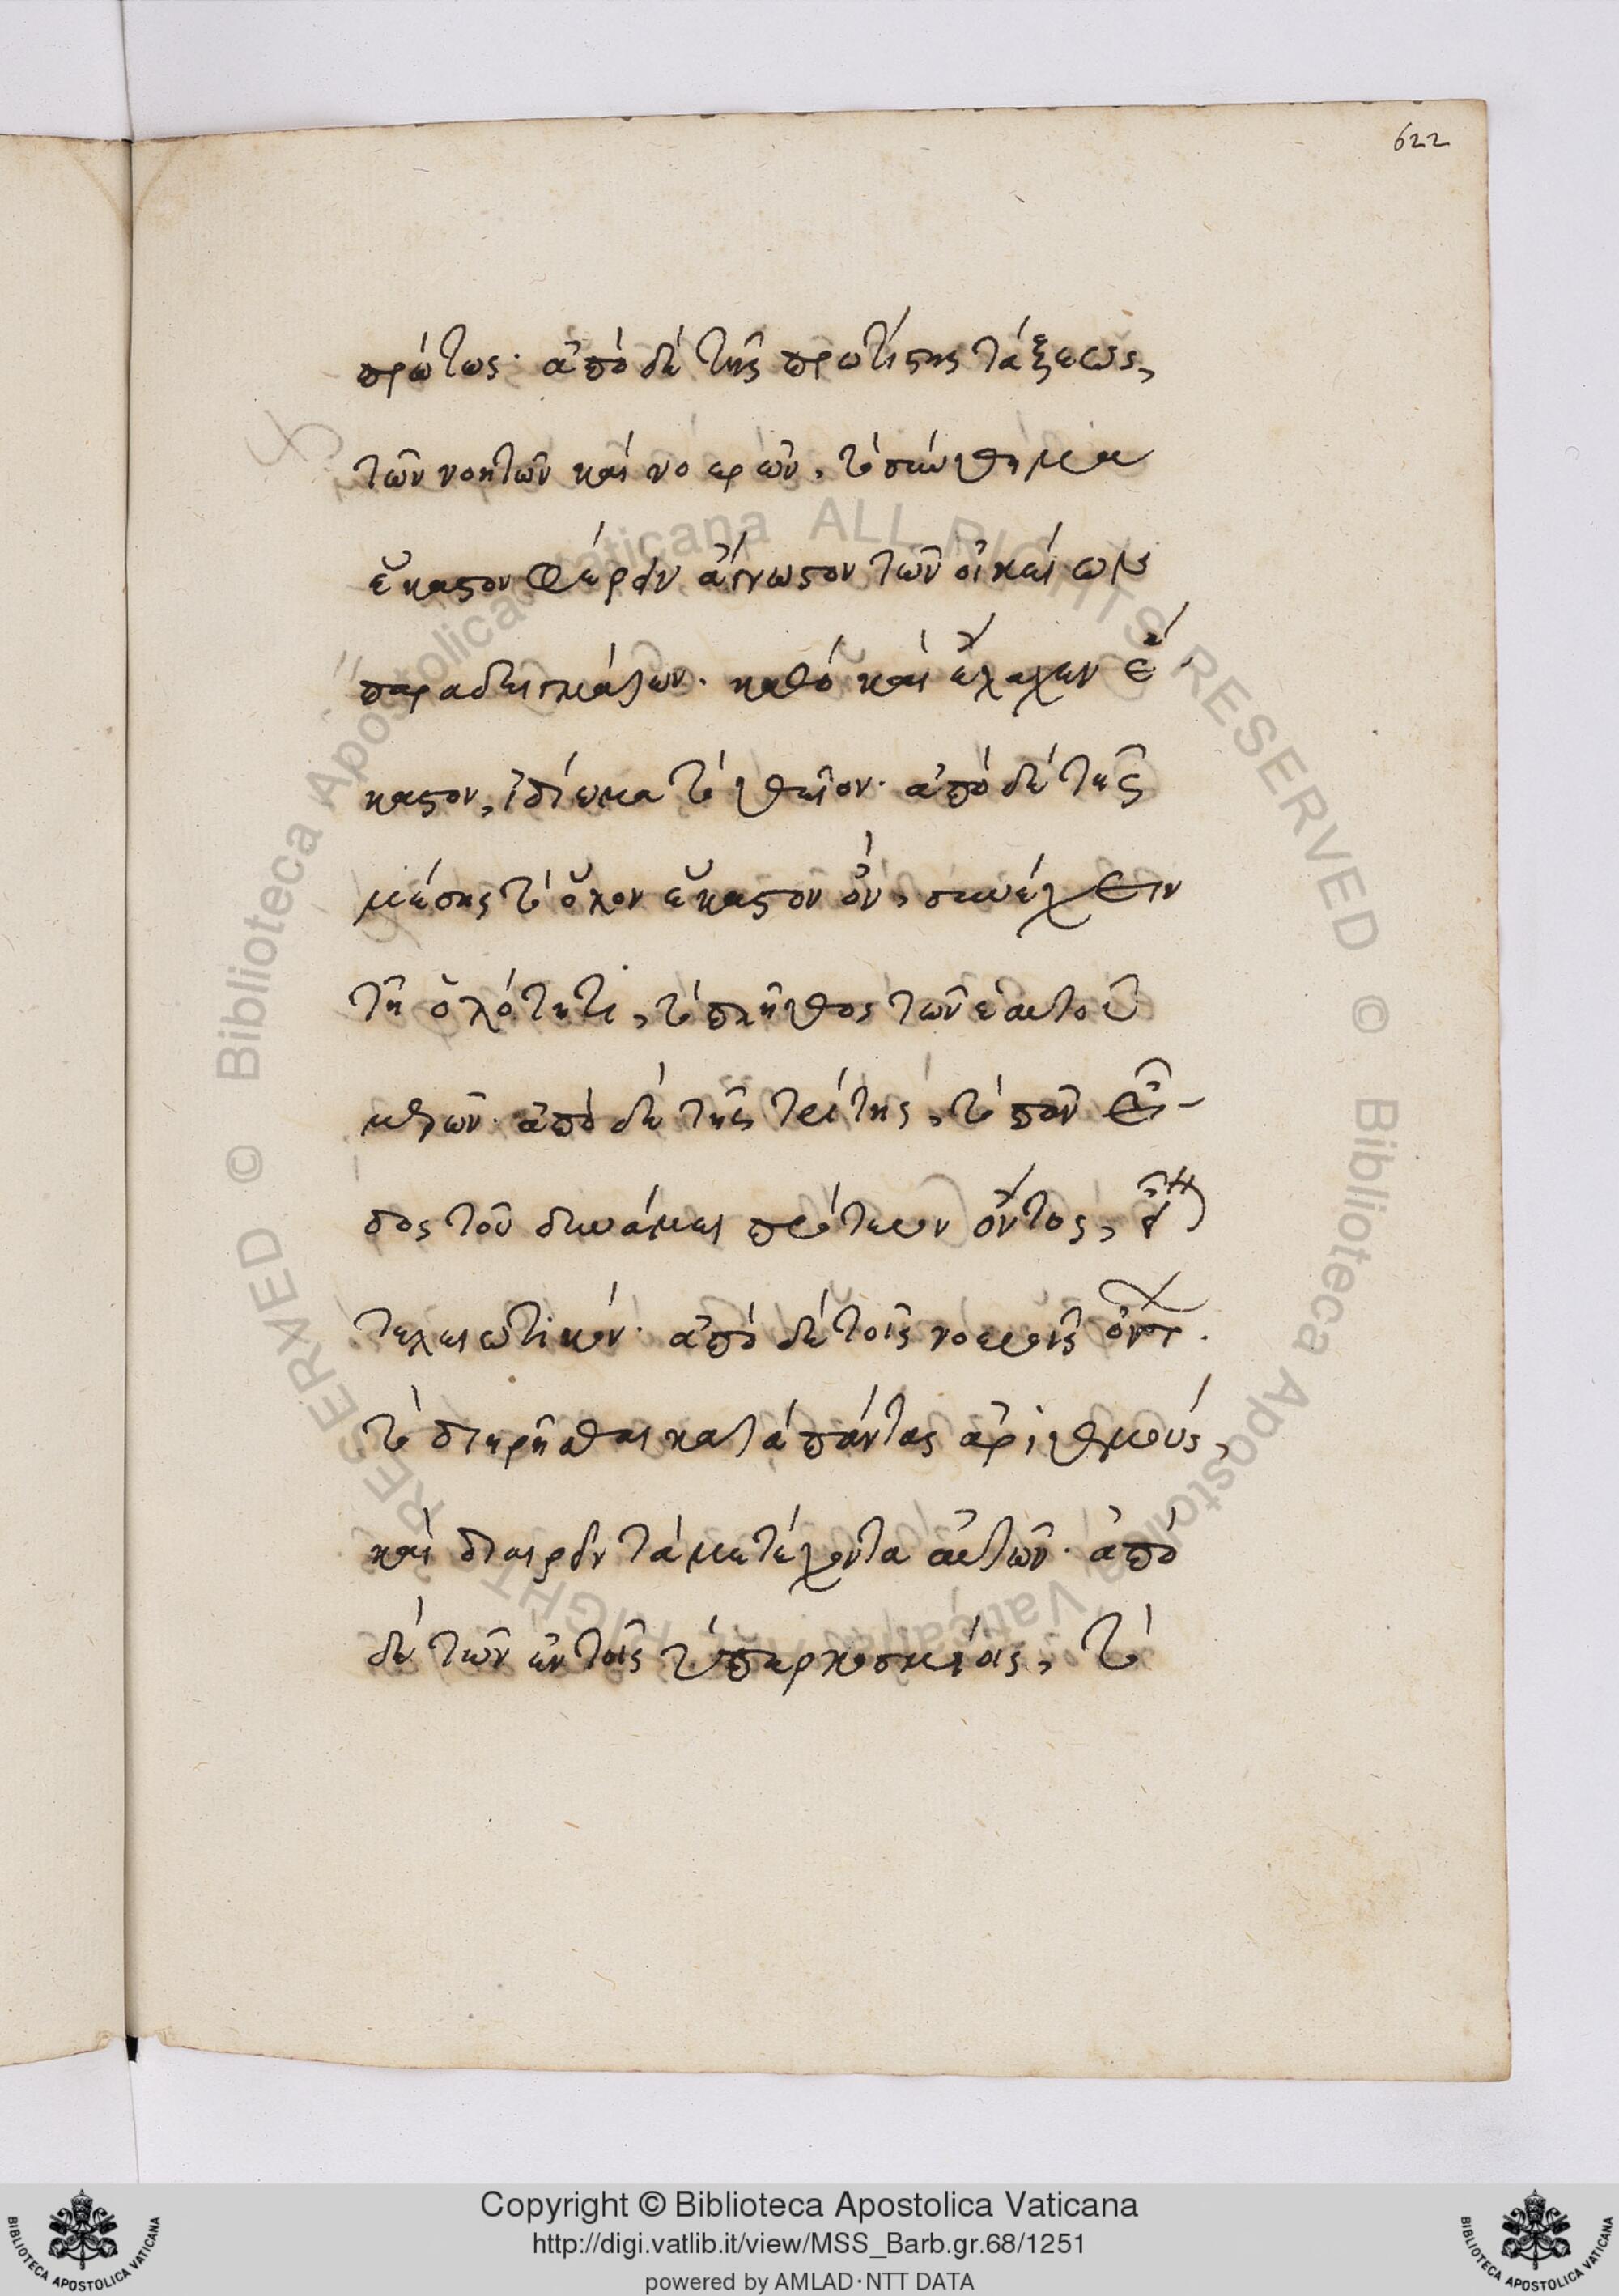 622
πρώτως· ἀπὸ δὲ τῆς πρωτίστης τάξεως,
τῶν νοητῶν καὶ νοερῶν, τὸ σύνθημα
ἕκαστον φέρειν ἄγνωστον τῶν οἰκείων
παραδειγμάτων· καθὸ καὶ ἔλαχεν ἕ-
καστον, ἰδίωμα τὸ θεῖον· ἀπὸ δὲ τῆς
μέσης τὸ ὅλον ἕκαστον ὂν, συνέχειν
τῇ ὁλότητι, τὸ πλῆθος τῶν ἑαυτοῦ
μερῶν· ἀπὸ δὲ τῆς τρίτης, τὸ πᾶν εἶ-
δος τοῦ δυνάμει πρότερον ὄντος, εἶναι
τελειωτικόν· ἀπὸ δὲ τοῖς νοεροῖς
τὸ διῃρῆσθαι κατὰ πάντας ἀριθμοὺς,
καὶ διαιρεῖν τὰ μετέχοντα αὐτῶν· ἀπὸ
δὲ τῶν ἐν τοῖς ὑπερκοσμίοις, τὸ
© Biblioteca Apostolica Vaticana ALL RIGHTS RESERVED © Biblioteca Apostolica Vaticana ALL RIGHTS RESERVED
Copyright © Biblioteca Apostolica Vaticana
http://digi.vatlib.it/view/MSS_Barb.gr.68/1251
powered by AMLAD·NTT DATA
BIBLIOTECA APOSTOLICA VATICANA
BIBLIOTECA APOSTOLICA VATICANA